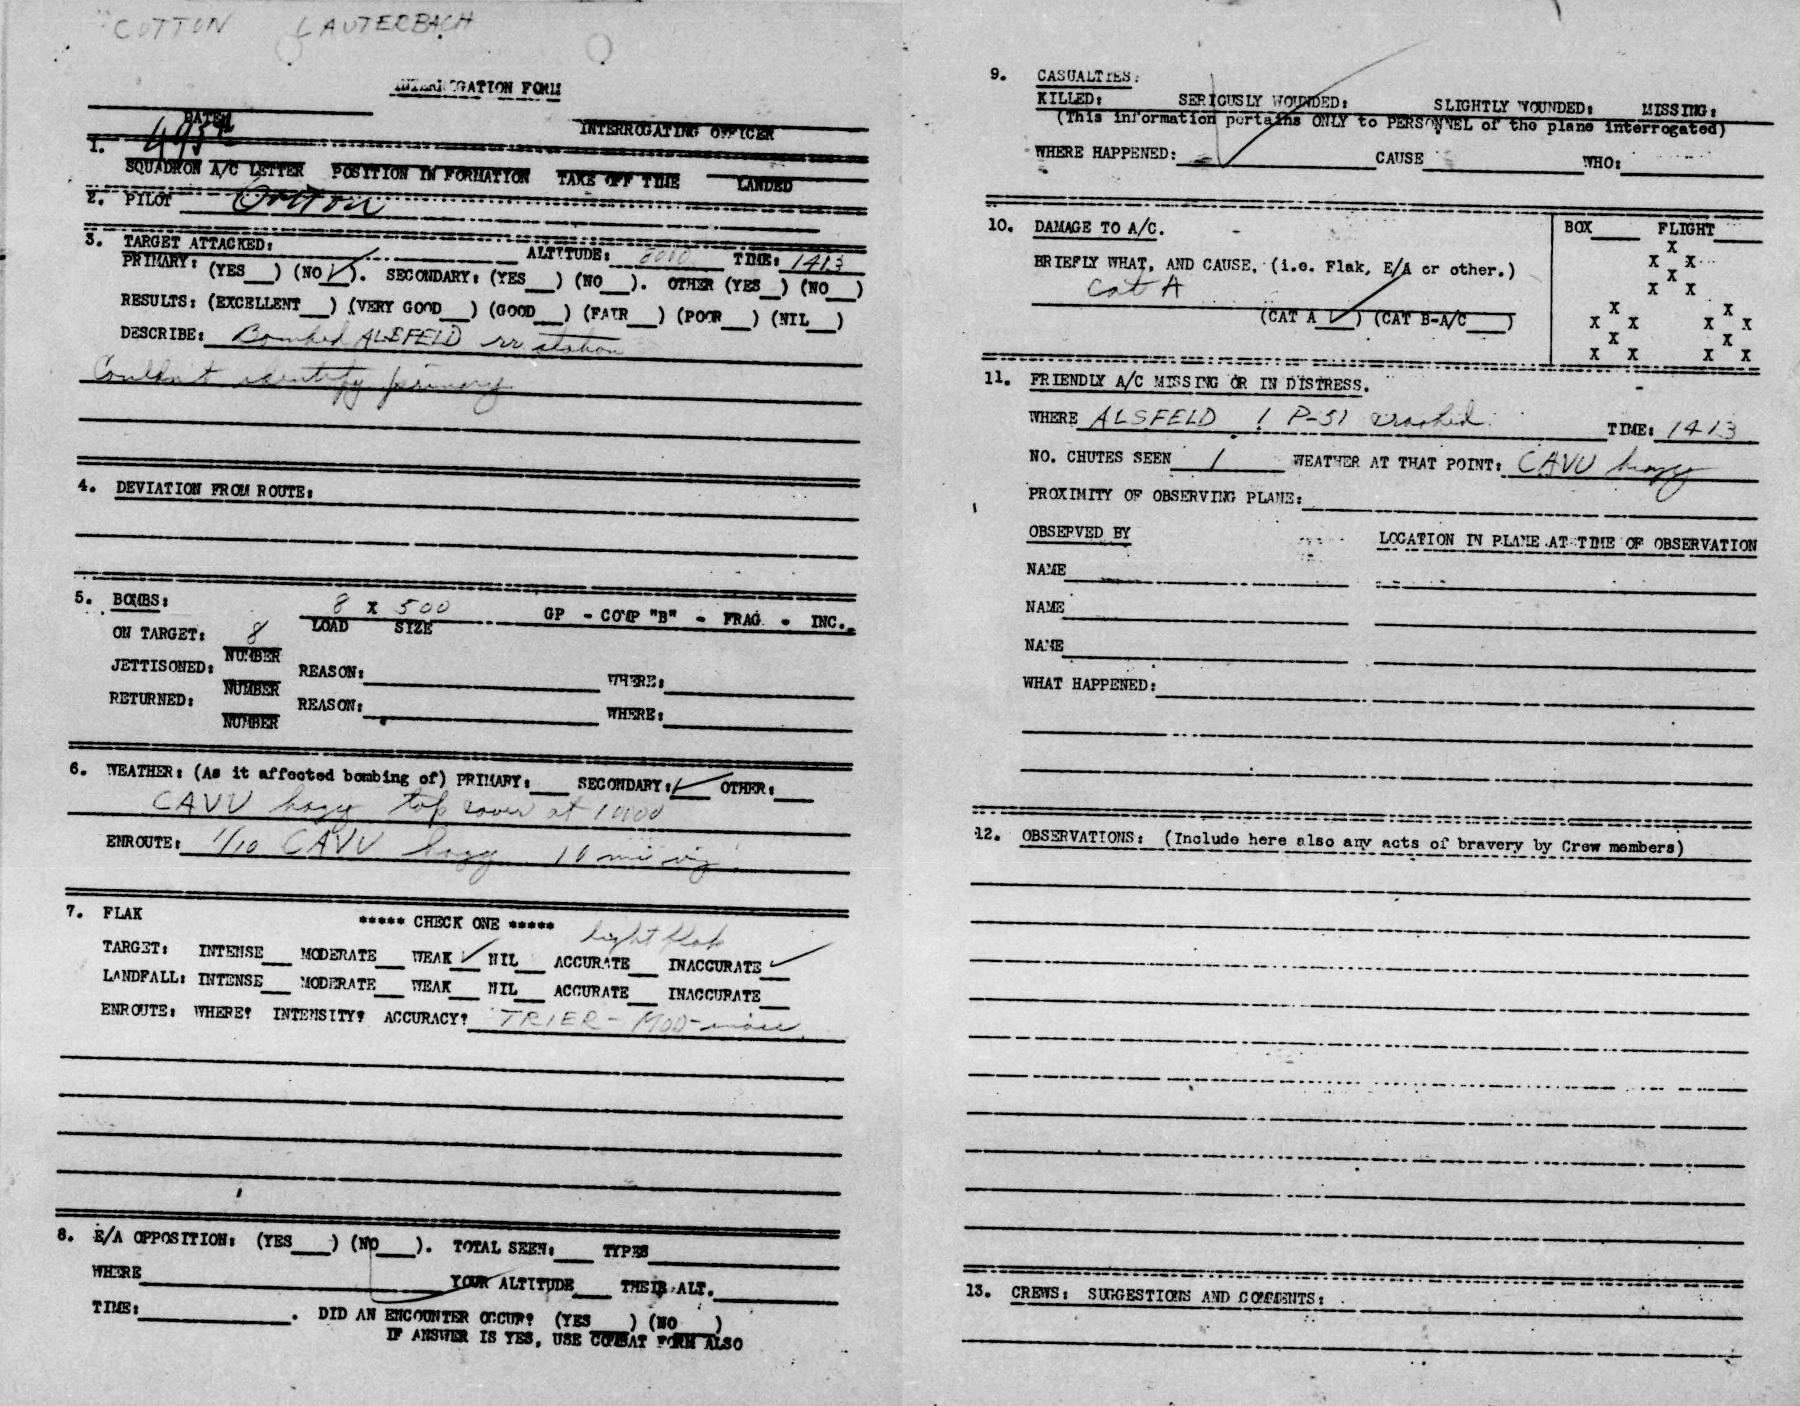 COTTON LAUTERBACH
INTERROGATION FORM
DATE INTERROGATING OFFICER
1.
SQUADRON A/C LETTER POSITION IN FORMATION TAKE OFF TIME LANDED
2. PILOT Cotton
3. TARGET ATTACKED: ALTITUDE: TIME: 1413
PRIMARY: (YES__) (NO ✓). SECONDARY: (YES__) (NO__). OTHER (YES__) (NO__)
RESULTS: (EXCELLENT__) (VERY GOOD__) (GOOD__) (FAIR__) (POOR__) (NIL__)
DESCRIBE: Bombed ALSFELD rr station
Couldn't identify primary
4. DEVIATION FROM ROUTE:
5. BOMBS: 8 X 500 GP - COMP "B" - FRAG. - INC.
LOAD SIZE
ON TARGET: 8
NUMBER
JETTISONED: REASON: WHERE:
NUMBER
RETURNED: REASON: WHERE:
NUMBER
6. WEATHER: (As it affected bombing of) PRIMARY:__ SECONDARY: ✓ OTHER:__
CAVU hazy top cover at 10000
ENROUTE: 1/10 CAVU hazy 10 mi viz
7. FLAK ***** CHECK ONE *****
light flak
TARGET: INTENSE__ MODERATE__ WEAK ✓ NIL__ ACCURATE__ INACCURATE ✓
LANDFALL: INTENSE__ MODERATE__ WEAK__ NIL__ ACCURATE__ INACCURATE__
ENROUTE: WHERE? INTENSITY? ACCURACY? TRIER - MOD -
8. E/A OPPOSITION: (YES___) (NO___). TOTAL SEEN:___ TYPES
WHERE YOUR ALTITUDE___ THEIR ALT.
TIME: . DID AN ENCOUNTER OCCUR? (YES___) (NO___)
IF ANSWER IS YES, USE COMBAT FORM ALSO
9. CASUALTIES:
KILLED: SERIOUSLY WOUNDED: SLIGHTLY WOUNDED: MISSING:
(This information pertains ONLY to PERSONNEL of the plane interrogated)
WHERE HAPPENED: CAUSE WHO:
10. DAMAGE TO A/C. BOX FLIGHT
BRIEFLY WHAT, AND CAUSE, (i.e. Flak, E/A or other.)
Cat A
(CAT A ✓) (CAT B-A/C___)
X
X X
X
X X
X X
X X X X
X X
X X X X
11. FRIENDLY A/C MISSING OR IN DISTRESS.
WHERE ALSFELD 1 P-51 crashed TIME: 1413
NO. CHUTES SEEN 1 WEATHER AT THAT POINT: CAVU hazy
PROXIMITY OF OBSERVING PLANE:
OBSERVED BY LOCATION IN PLANE AT TIME OF OBSERVATION
NAME
NAME
NAME
WHAT HAPPENED:
12. OBSERVATIONS: (Include here also any acts of bravery by Crew members)
13. CREWS: SUGGESTIONS AND COMMENTS: